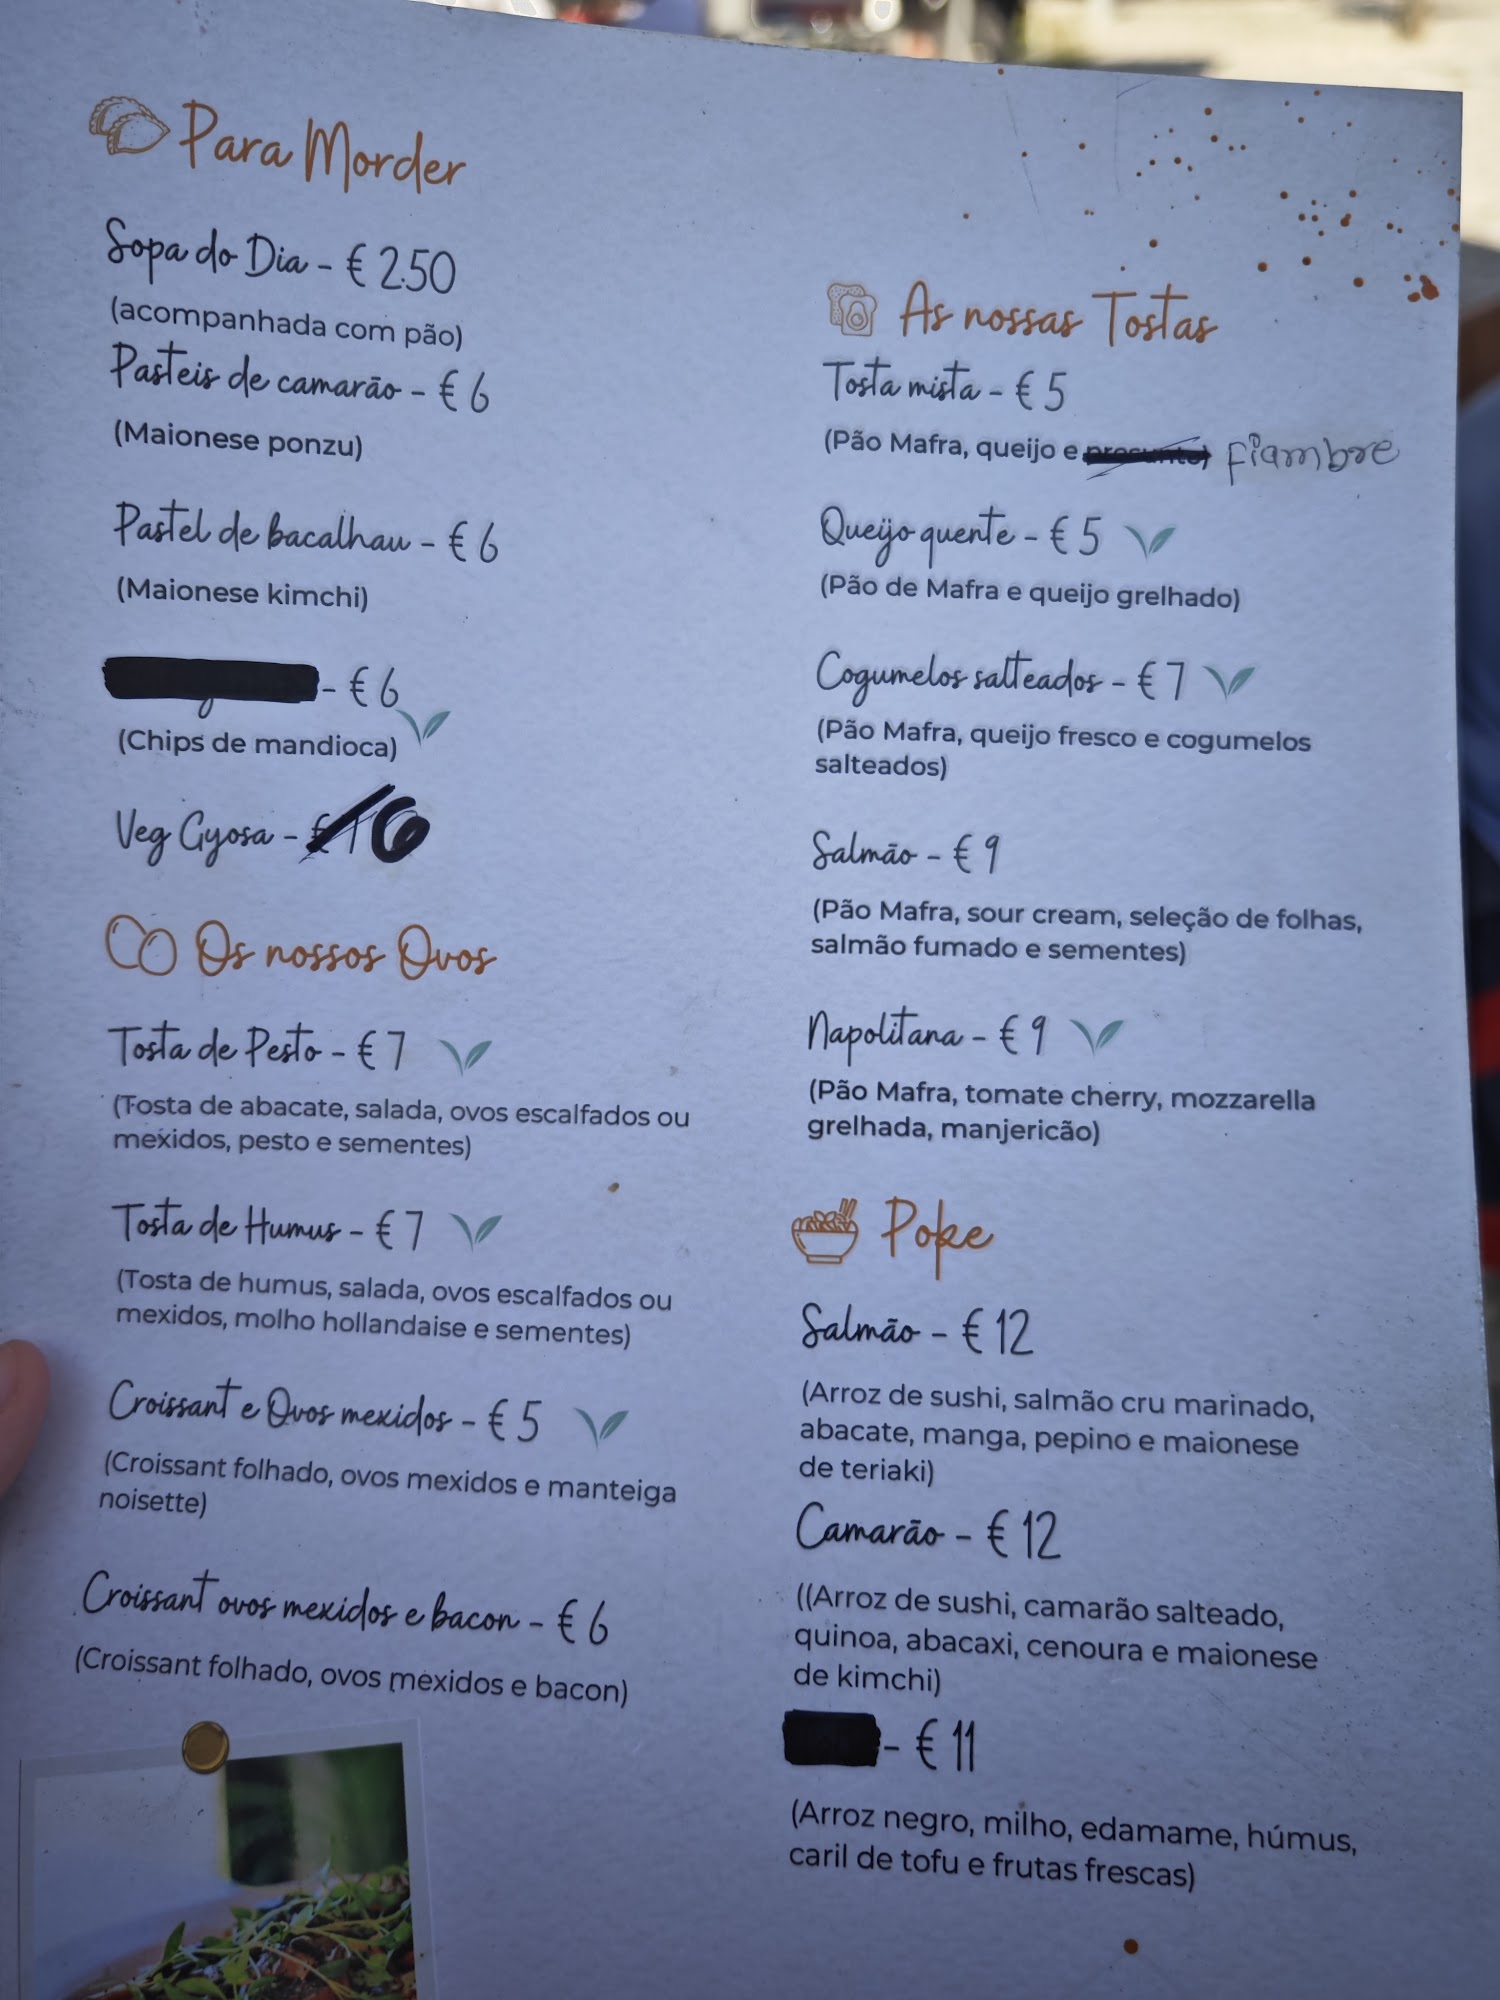 Para Morder
Sopa do Dia - € 2.50
(acompanhada com pão)
Pasteis de camarão - € 6
(Maionese ponzu)
Pastel de bacalhau - € 6
(Maionese kimchi)
- € 6
(Chips de mandioca)
Veg Gyosa - 6
Os nossos Ovos
Tosta de Pesto - € 7
(Tosta de abacate, salada, ovos escalfados ou
mexidos, pesto e sementes)
Tosta de Humus - € 7
(Tosta de humus, salada, ovos escalfados ou
mexidos, molho hollandaise e sementes)
Croissant e Ovos mexidos - € 5
(Croissant folhado, ovos mexidos e manteiga
noisette)
Croissant ovos mexidos e bacon - € 6
(Croissant folhado, ovos mexidos e bacon)
As nossas Tostas
Tosta mista - € 5
(Pão Mafra, queijo e presunto) fiambre
Queijo quente - € 5
(Pão de Mafra e queijo grelhado)
Cogumelos salteados - € 7
(Pão Mafra, queijo fresco e cogumelos
salteados)
Salmão - € 9
(Pão Mafra, sour cream, seleção de folhas,
salmão fumado e sementes)
Napolitana - € 9
(Pão Mafra, tomate cherry, mozzarella
grelhada, manjericão)
Poke
Salmão - € 12
(Arroz de sushi, salmão cru marinado,
abacate, manga, pepino e maionese
de teriaki)
Camarão - € 12
((Arroz de sushi, camarão salteado,
quinoa, abacaxi, cenoura e maionese
de kimchi)
- € 11
(Arroz negro, milho, edamame, húmus,
caril de tofu e frutas frescas)